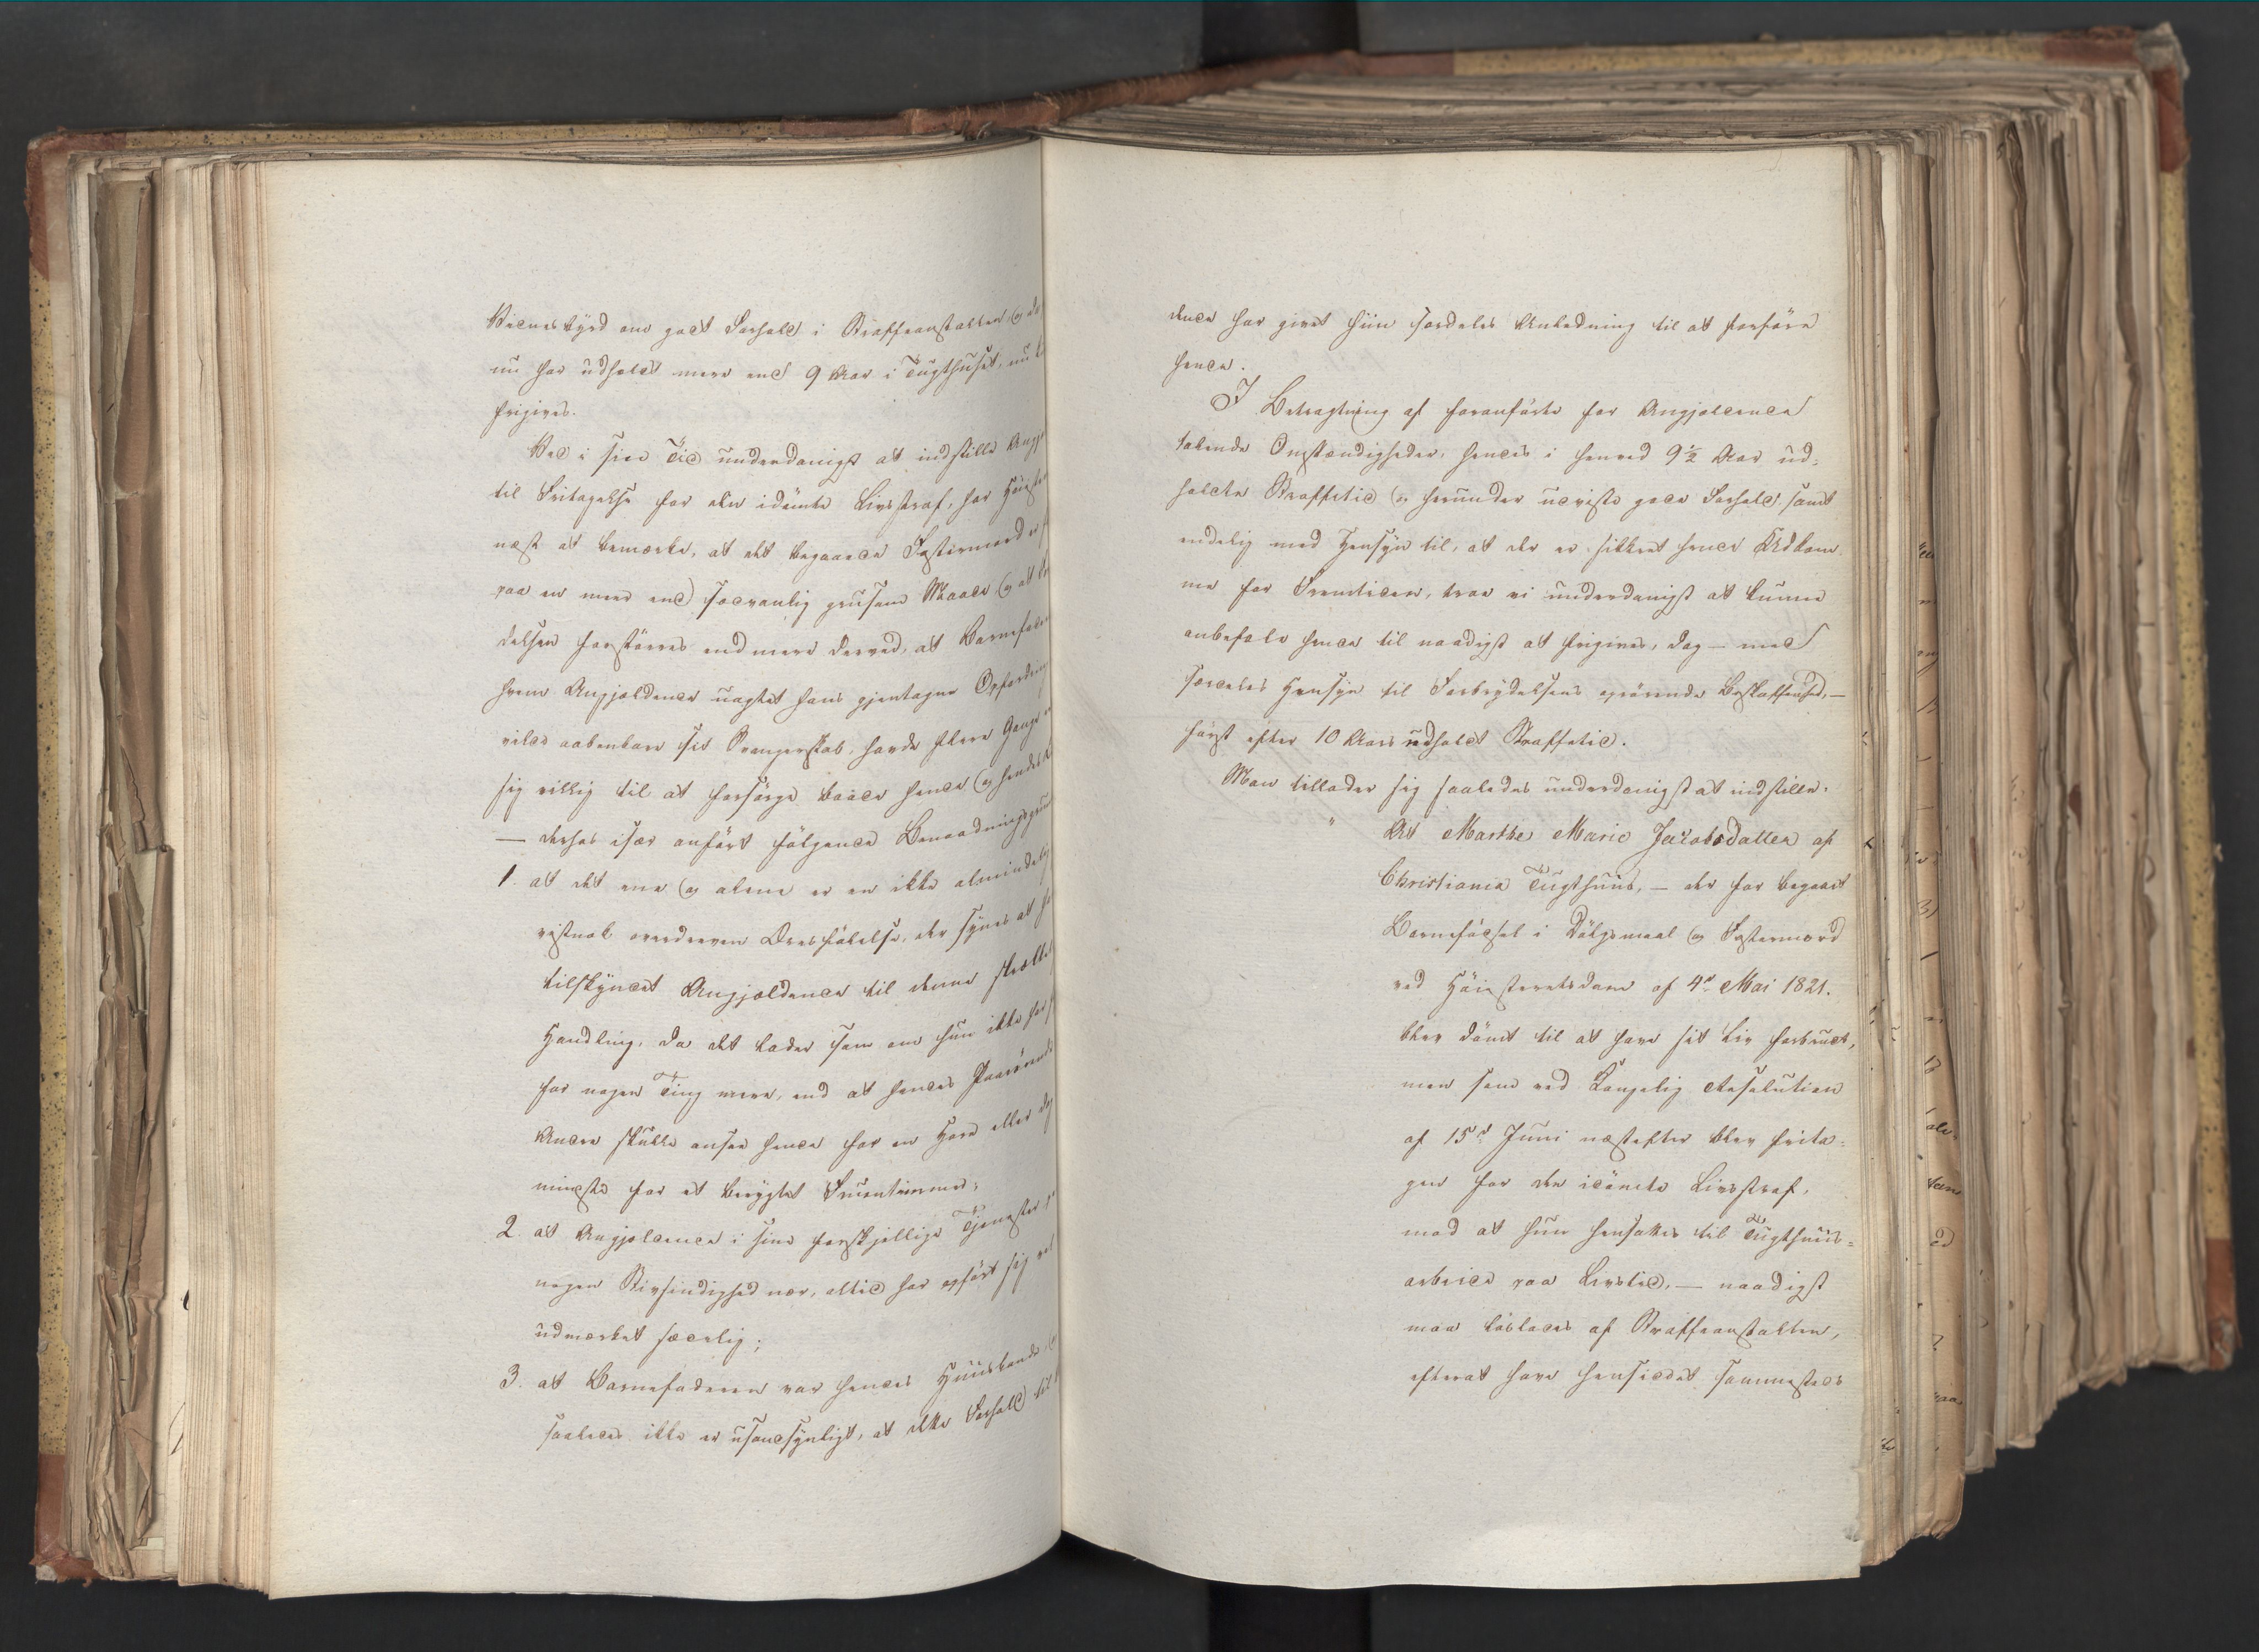 Vidnesbyrd om godt Forhold i Straffeanstalten, og da
nu har udholdt mere end 9 Aar i Tugthuset, nu
frigives.
Ved i sin Tid underdanigst at indstille Angj
til Fritagelse for den idömte Livsstraf, har Höieste
næst at bemærke, at det begaaede Fostermord er
paa en meer end sædvanlig grusom Maade, og at
delsen forstörres end mere derved, at Barnefade
hvem Angjældende uagtet hans gjentagne Opfordrin
vilde aabenbare sit Svangerskab, havde flere Gange
sig villig til at forsörge baade hende og hendes
– derhos især anfört fölgende Benaadningsgrun
1. at det ene og alene er en ikke almindelig
vistnok overdreven Æresfölelse, der synes at
tilskyndet Angjældende til denne skrække
Handling, da det lader som om hun ikke har
for nogen Ting mere, end at hendes Paarörende
Andre skulle ansee hende for en Hore eller dog
mindste for et berygtet Fruentimmer;
2. at Angjældende i sine forskjellige Tjenester
nogen Stivsindighed nær, altid har opfört sig vel
udmærket sædelig;
3. at Barnefaderen var hendes Huusbonde,
saaledes ikke er usandsynligt, at dette Forhold til
dende har givet hiin særdeles Anledning til at forföre
hende.
I Betragtning af foranförte for Angjældende
talende Omstændigheder, hendes i henved 9½ Aar ud-
holdte Straffetid og herunder udviste gode Forhold, samt
endelig med Hensyn til, at der er sikkret hende Udkom-
me for Fremtiden, troe vi underdanigst at kunne
anbefale hende til naadigst at frigives, dog – med
særdeles Hensyn til Forbrydelsens oprörende Beskaffenhed, –
först efter 10 Aars udholdt Straffetid.
Man tillader sig saaledes underdanigst at indstille:
" At Marthe Marie Jacobsdatter af
Christiania Tugthuus, – der for begaaet
Barneföd sel i Dölgsmaal og Fostermord
ved Höiesteretsdom af 4de Mai 1821.
blev dömt til at have sit Liv forbrudt,
men som ved Kongelig Resolution
af 15de Juni næstefter blev frita-
gen for den idömte Livsstraf,
mod at hun hensattes til Tugthuus-
arbeide paa Livstid, – naadigst
maa löslades af Straffeanstalten,
efterat have hensiddet sammesteds